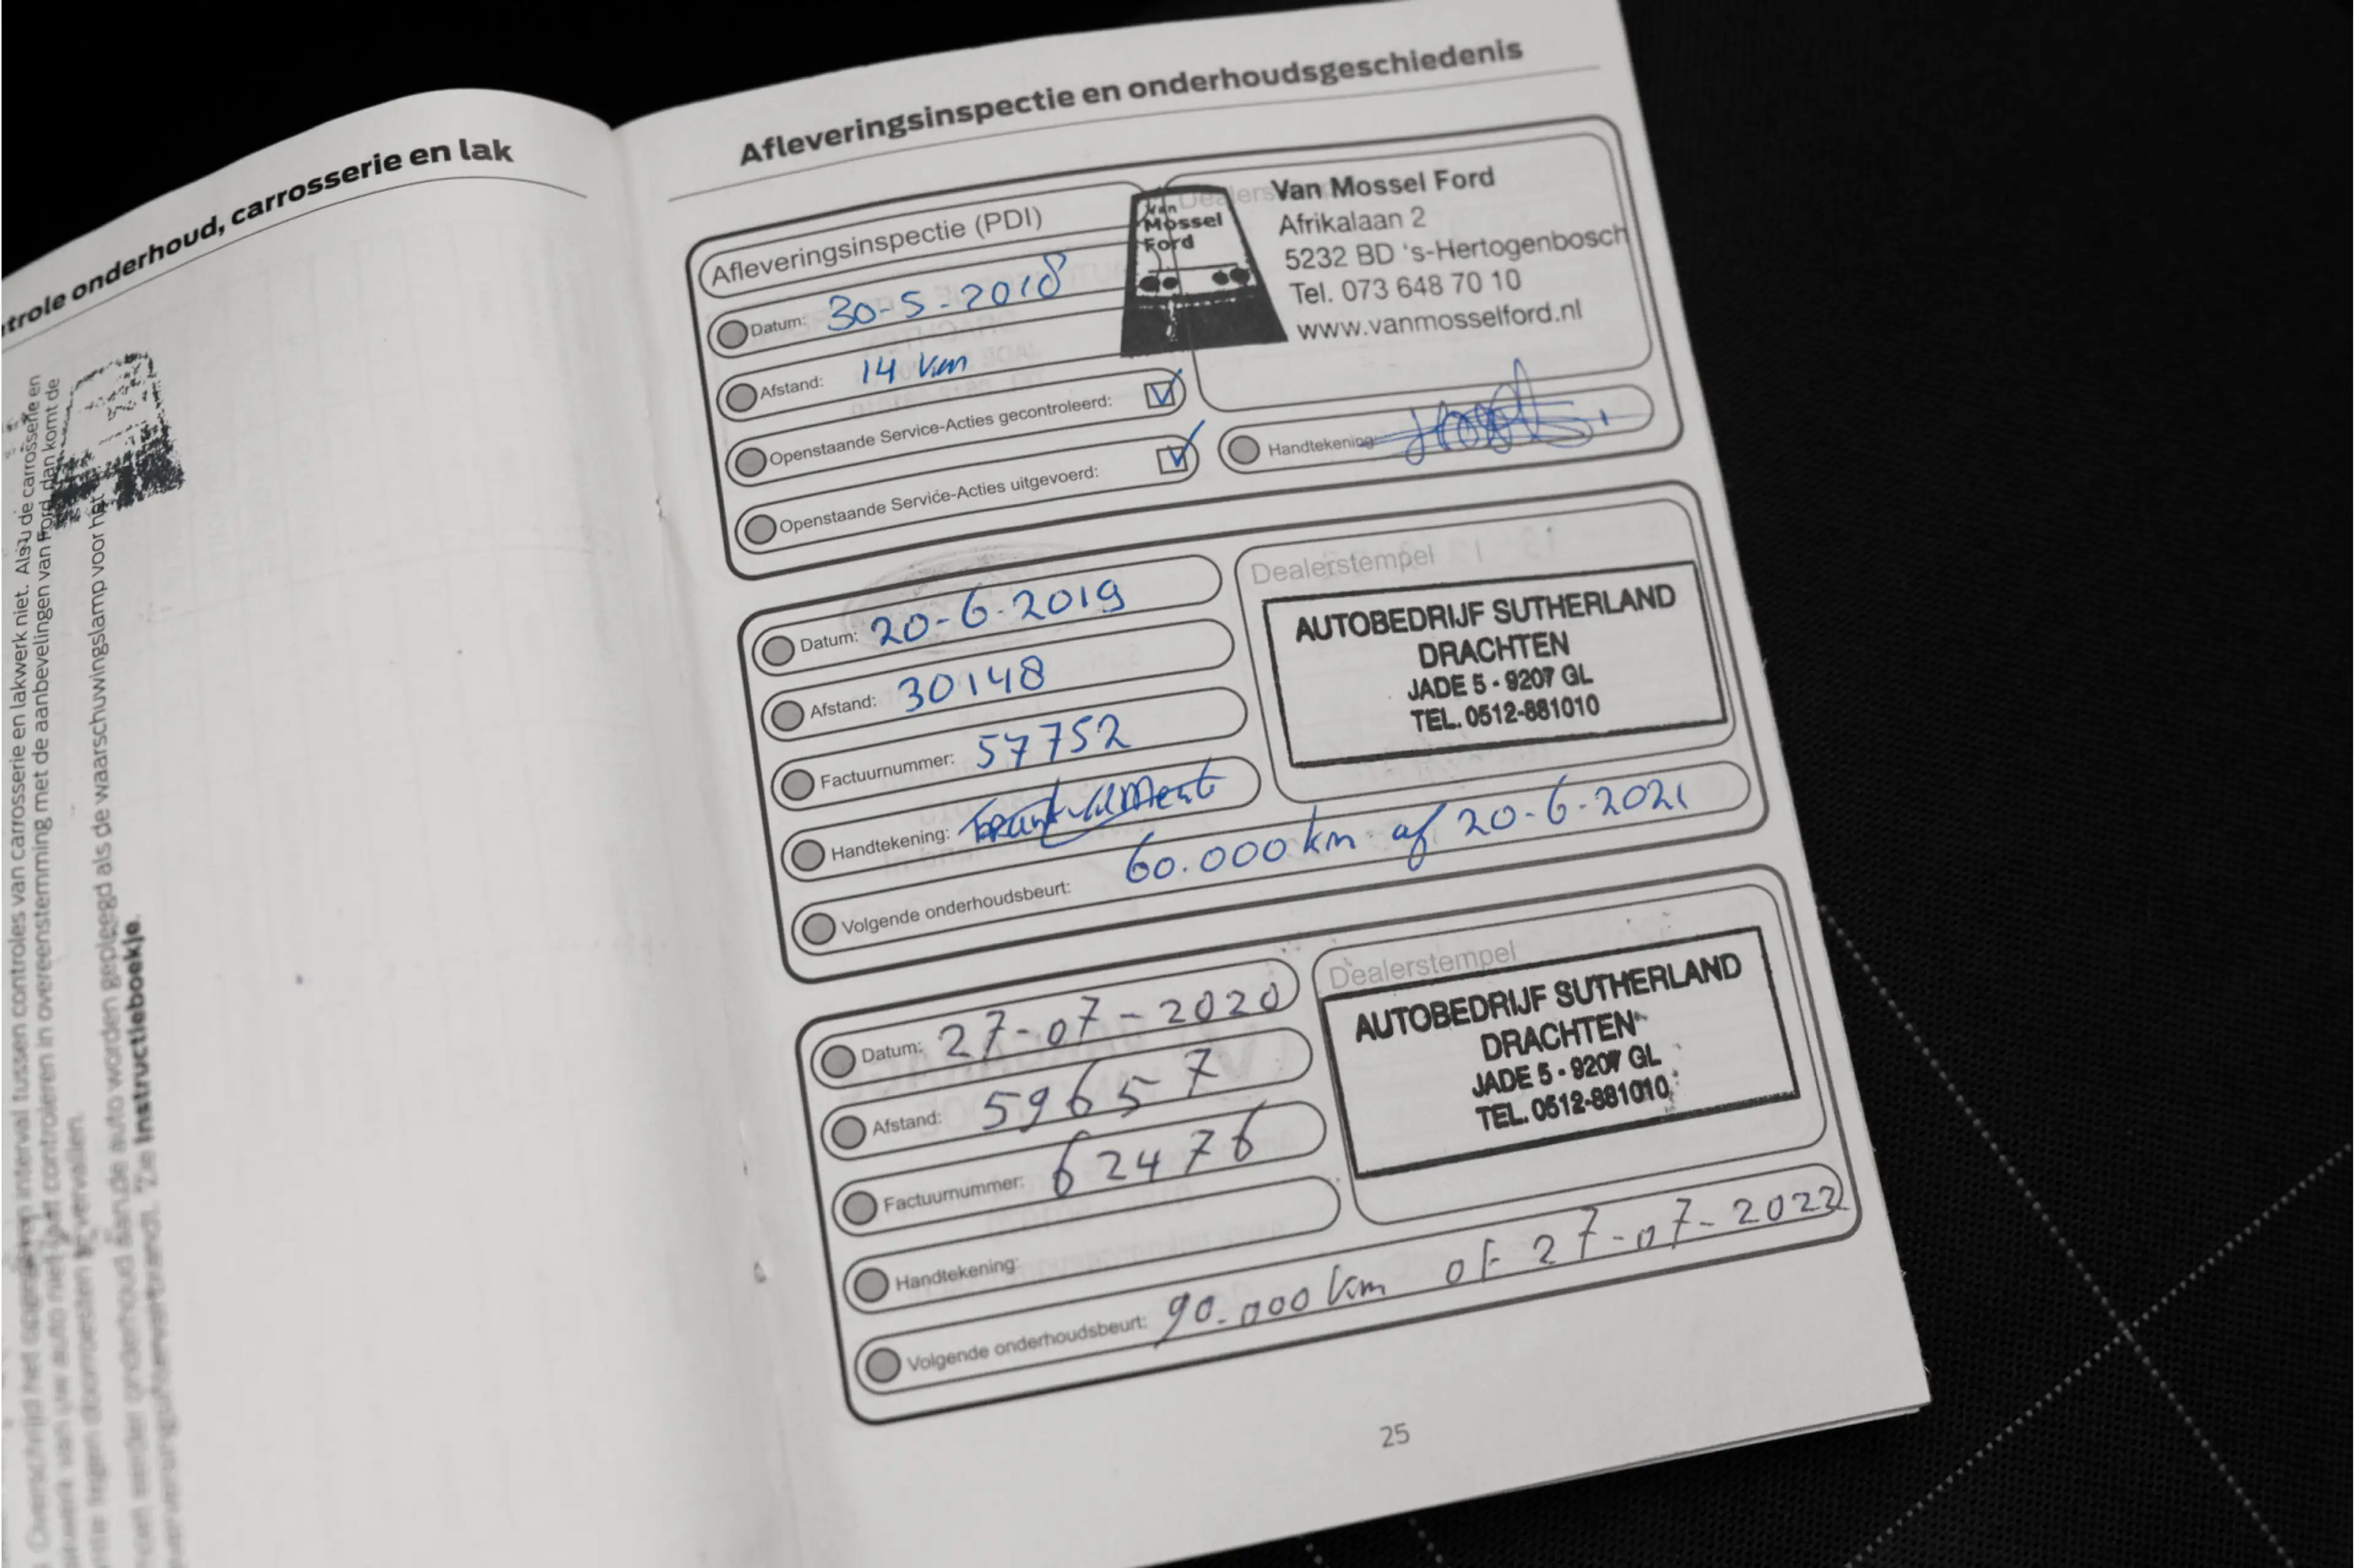 ntrole onderhoud, carrosserie en lak
interval tussen controles van carrosserie en lakwerk niet. Als u de carrosserie en
controleren in overeenstemming met de aanbevelingen van Ford, dan komt de
vervallen.
auto worden gepleegd als de waarschuwingslamp voor het
Zie Instructieboekje.
Afleveringsinspectie en onderhoudsgeschiedenis
Afleveringsinspectie (PDI)
Datum: 30-5-2018
Afstand: 14 km
Openstaande Service-Acties gecontroleerd:
Openstaande Service-Acties uitgevoerd:
Dealerstempel
Van
Mossel
Ford
Van Mossel Ford
Afrikalaan 2
5232 BD 's-Hertogenbosch
Tel. 073 648 70 10
www.vanmosselford.nl
Handtekening:
Datum: 20-6-2019
Afstand: 30148
Factuurnummer: 57752
Handtekening:
Volgende onderhoudsbeurt: 60.000 km of 20-6-2021
Dealerstempel
AUTOBEDRIJF SUTHERLAND
DRACHTEN
JADE 5 - 9207 GL
TEL. 0512-881010
Datum: 27-07-2020
Afstand: 59657
Factuurnummer: 62476
Handtekening:
Volgende onderhoudsbeurt: 90.000 km of 27-07-2022
Dealerstempel
AUTOBEDRIJF SUTHERLAND
DRACHTEN
JADE 5 - 9207 GL
TEL. 0512-881010
25